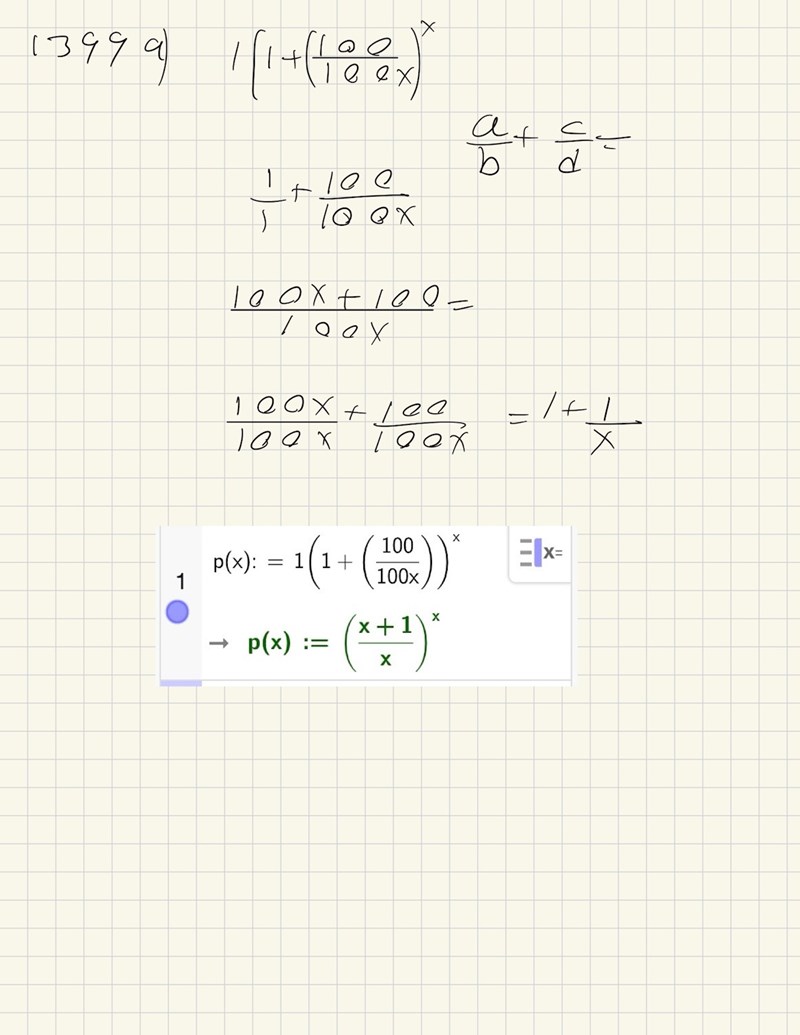 1399 a) 1(1+(100/100x)^x
a/b + c/d =
1/1 + 100/100x
100x+100/100x =
100x/100x + 100/100x = 1+ 1/x
p(x): = 1(1 + (100/100x))^x x=
1
→ p(x) := (x + 1/x)^x